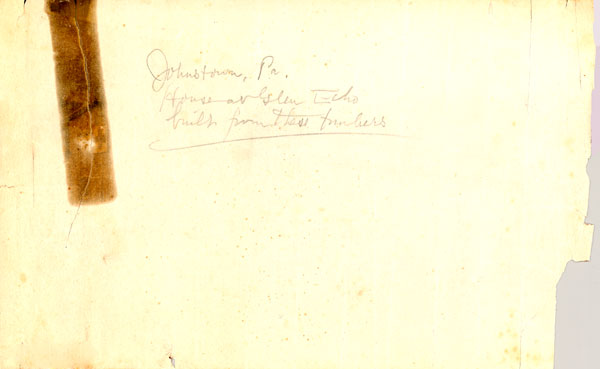 Johnstown, Pa.
House at Glen Echo
built from these timbers